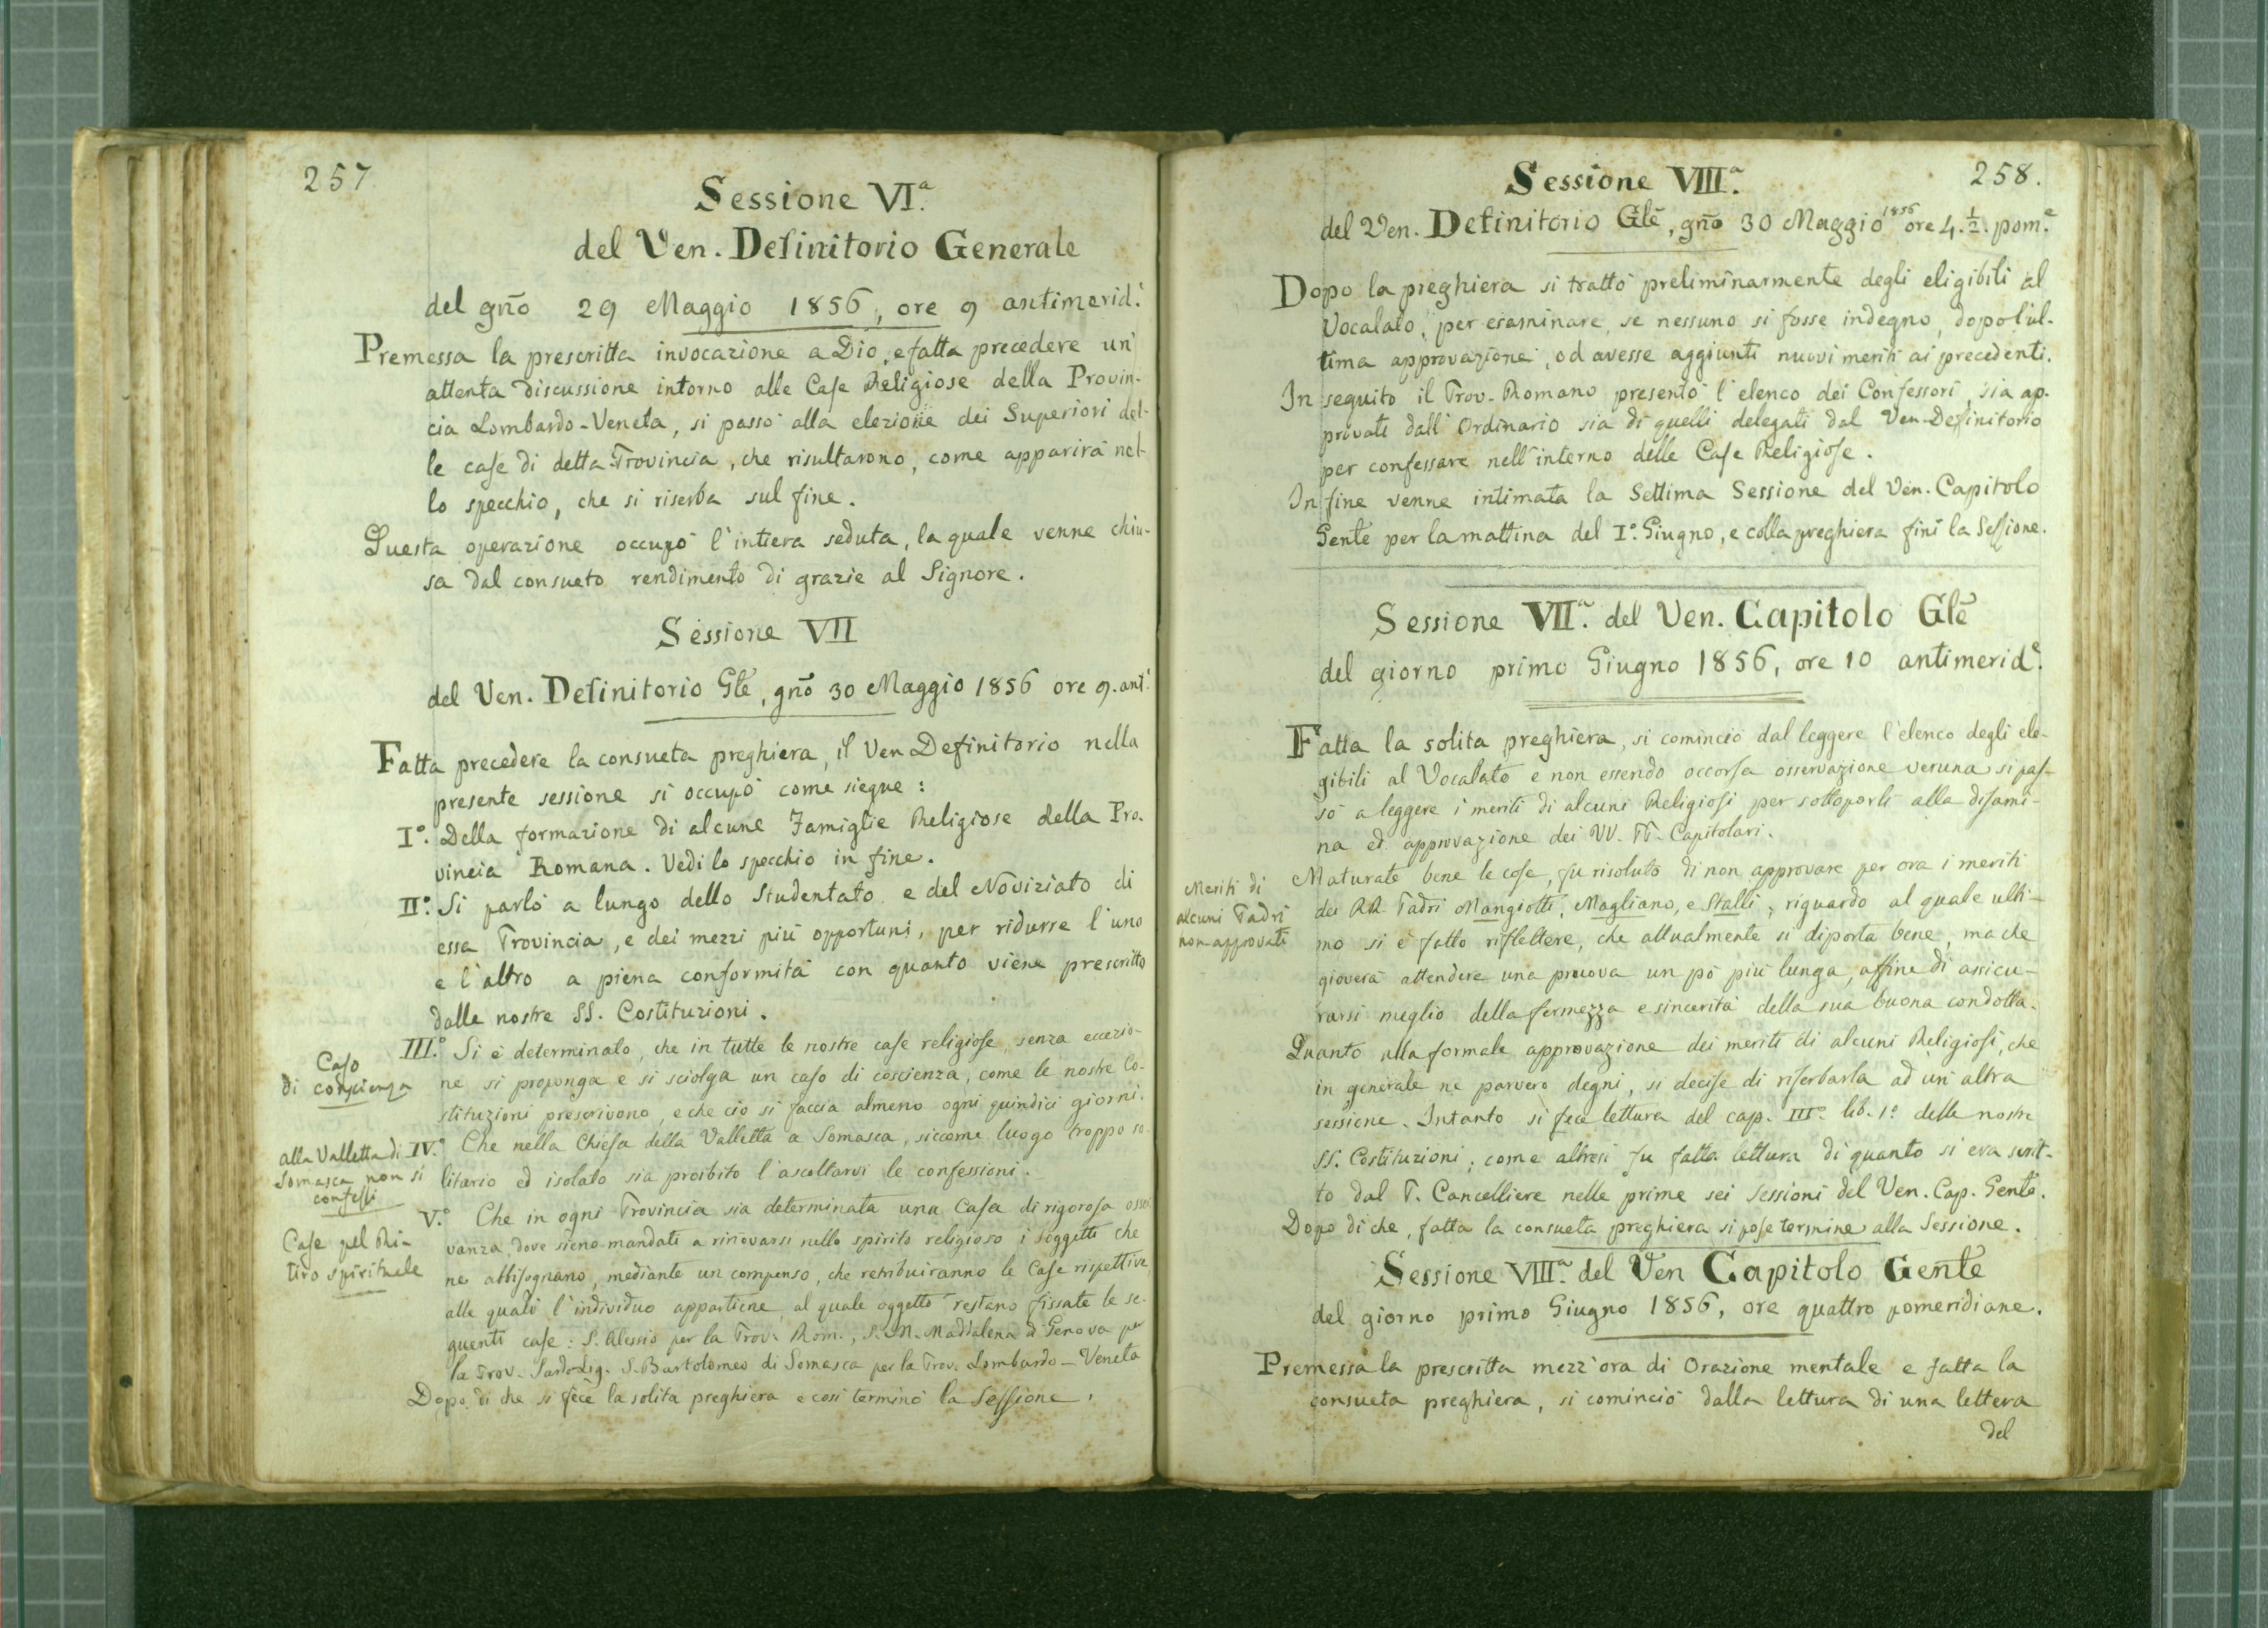 257
Sessione VIª.
del Ven. Definitorio Generale
del gño 29 Maggio 1856, ore 9 antimerid.ⁱ
Premessa la prescritta invocazione a Dio, e fatta precedere un'
attenta discussione intorno alle Case Religiose della Provin-
cia Lombardo-Veneta, si passò alla elezione dei Superiori del-
le case di detta Provincia, che risultarono, come apparirà nel-
lo specchio, che si riserba sul fine.
Questa operazione occupò l'intiera seduta, la quale venne chiu-
sa dal consueto rendimento di grazie al Signore.
Sessione VII
del Ven. Definitorio Glẽ, gño 30 Maggio 1856 ore 9. ant.ⁱ
Fatta precedere la consueta preghiera, il Ven Definitorio nella
presente sessione si occupò come siegue:
I°. Della formazione di alcune Famiglie Religiose della Pro-
vincia Romana. Vedi lo specchio in fine.
II°. Si parlò a lungo dello Studentato e del Noviziato di
essa Provincia, e dei mezzi più opportuni, per ridurre l'uno
e l'altro a piena conformità con quanto viene prescritto
dalle nostre SS. Costituzioni.
Caso
di coscienza
III.° Si è determinato, che in tutte le nostre case religiose, senza eccezio-
ne si proponga e si sciolga un caso di coscienza, come le nostre Co-
stituzioni prescrivono, e che ciò si faccia almeno ogni quindici giorni.
alla Valletta di
Somasca non si
confessi
IV.° Che nella Chiesa della Valletta a Somasca, siccome luogo troppo so-
litario ed isolato sia proibito l'ascoltarvi le confessioni.
Case pel Ri-
tiro spirituale
V.° Che in ogni Provincia sia determinata una Casa di rigorosa osser
vanza, dove sieno mandati a rinovarsi nello spirito religioso i soggetti che
ne abbisognano, mediante un compenso, che retribuiranno le Case rispettive
alle quali l'individuo appartiene, al quale oggetto restano fissate le se-
guenti case: S. Alessio per la Prov. Rom., S. M. Maddalena di Genova per
la Prov. Sardo-Lig. S. Bartolomeo di Somasca per la Prov. Lombardo-Veneta
Dopo di che si fece la solita preghiera e così terminò la Sessione.
258.
Sessione VIIIª.
del Ven. Definitorio Glẽ, gño 30 Maggio 1856 ore 4.½. pom.ᵉ
Dopo la preghiera si trattò preliminarmente degli eligibili al
Vocalato, per esaminare, se nessuno si fosse indegno, dopo l'ul-
tima approvazione, od avesse aggiunti nuovi meriti ai precedenti.
In seguito il Prov. Romano presentò l'elenco dei Confessori, sia ap-
provati dall'Ordinario sia di quelli delegati dal Ven-Definitorio
per confessare nell'interno delle Case Religiose.
In fine venne intimata la Settima Sessione del Ven. Capitolo
Gente per la mattina del I°. Giugno, e colla preghiera finì la Sessione.
Sessione VIIª. del Ven. Capitolo Glẽ
del giorno primo Giugno 1856, ore 10 antimerid.ᵉ
Fatta la solita preghiera, si cominciò dal leggere l'elenco degli ele-
gibili al Vocalato e non essendo occorsa osservazione veruna si pas-
sò a leggere i meriti di alcuni Religiosi per sottoporli alla disami-
na ed approvazione dei VV. PP. Capitolari.
Meriti di
alcuni Padri
non approvati
Maturate bene le cose, fu risoluto di non approvare per ora i meriti
dei RR. Padri Mangiotti, Magliano, e Stalli; riguardo al quale ulti-
mo si è fatto riflettere, che attualmente si diporta bene, ma che
gioverà attendere una pruova un pò più lunga, affine di assicu-
rarsi meglio della fermezza e sincerità della sua buona condotta.
Quanto alla formale approvazione dei meriti di alcuni Religiosi, che
in generale ne parvero degni, si decise di riserbarla ad un'altra
sessione. Intanto si fece lettura del cap. III° lib. 1° delle nostre
SS. Costituzioni; come altresì fu fatta lettura di quanto si era scrit-
to dal P. Cancelliere nelle prime sei sessioni del Ven. Cap. Gente.
Dopo di che, fatta la consueta preghiera si pose termine alla Sessione.
Sessione VIIIª. del Ven Capitolo Geñte
del giorno primo Giugno 1856, ore quattro pomeridiane.
Premessa la prescritta mezz'ora di Orazione mentale e fatta la
consueta preghiera, si cominciò dalla lettura di una lettera
del